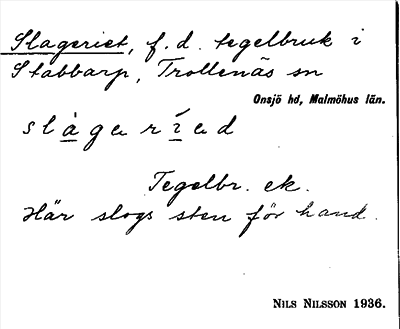 Slageriet, f. d. tegelbruk i
Stabbarp, Trollenäs sn
Onsjö hd, Malmöhus län.
slàgeríed
Tegelbr. ek.
Här slogs sten för hand.
NILS NILSSON 1936.